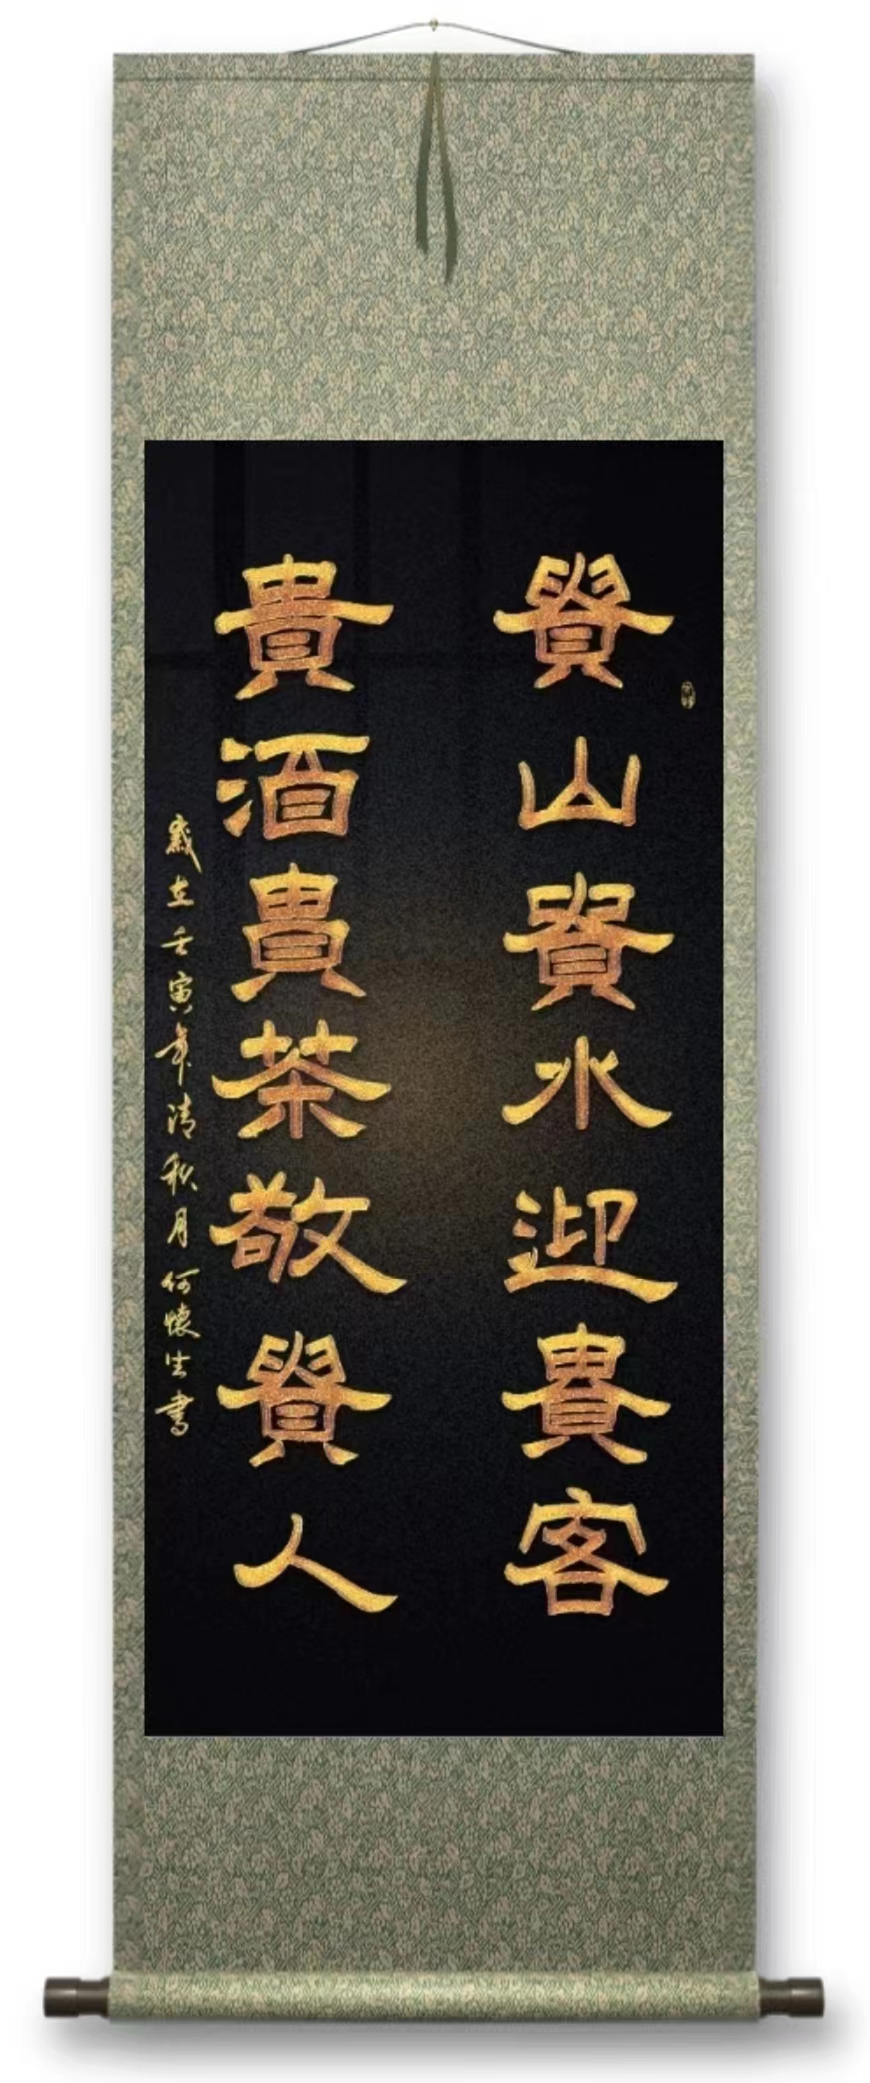 貴山貴水迎貴客
貴酒貴茶敬貴人
歲在壬寅年清秋月何懷生書